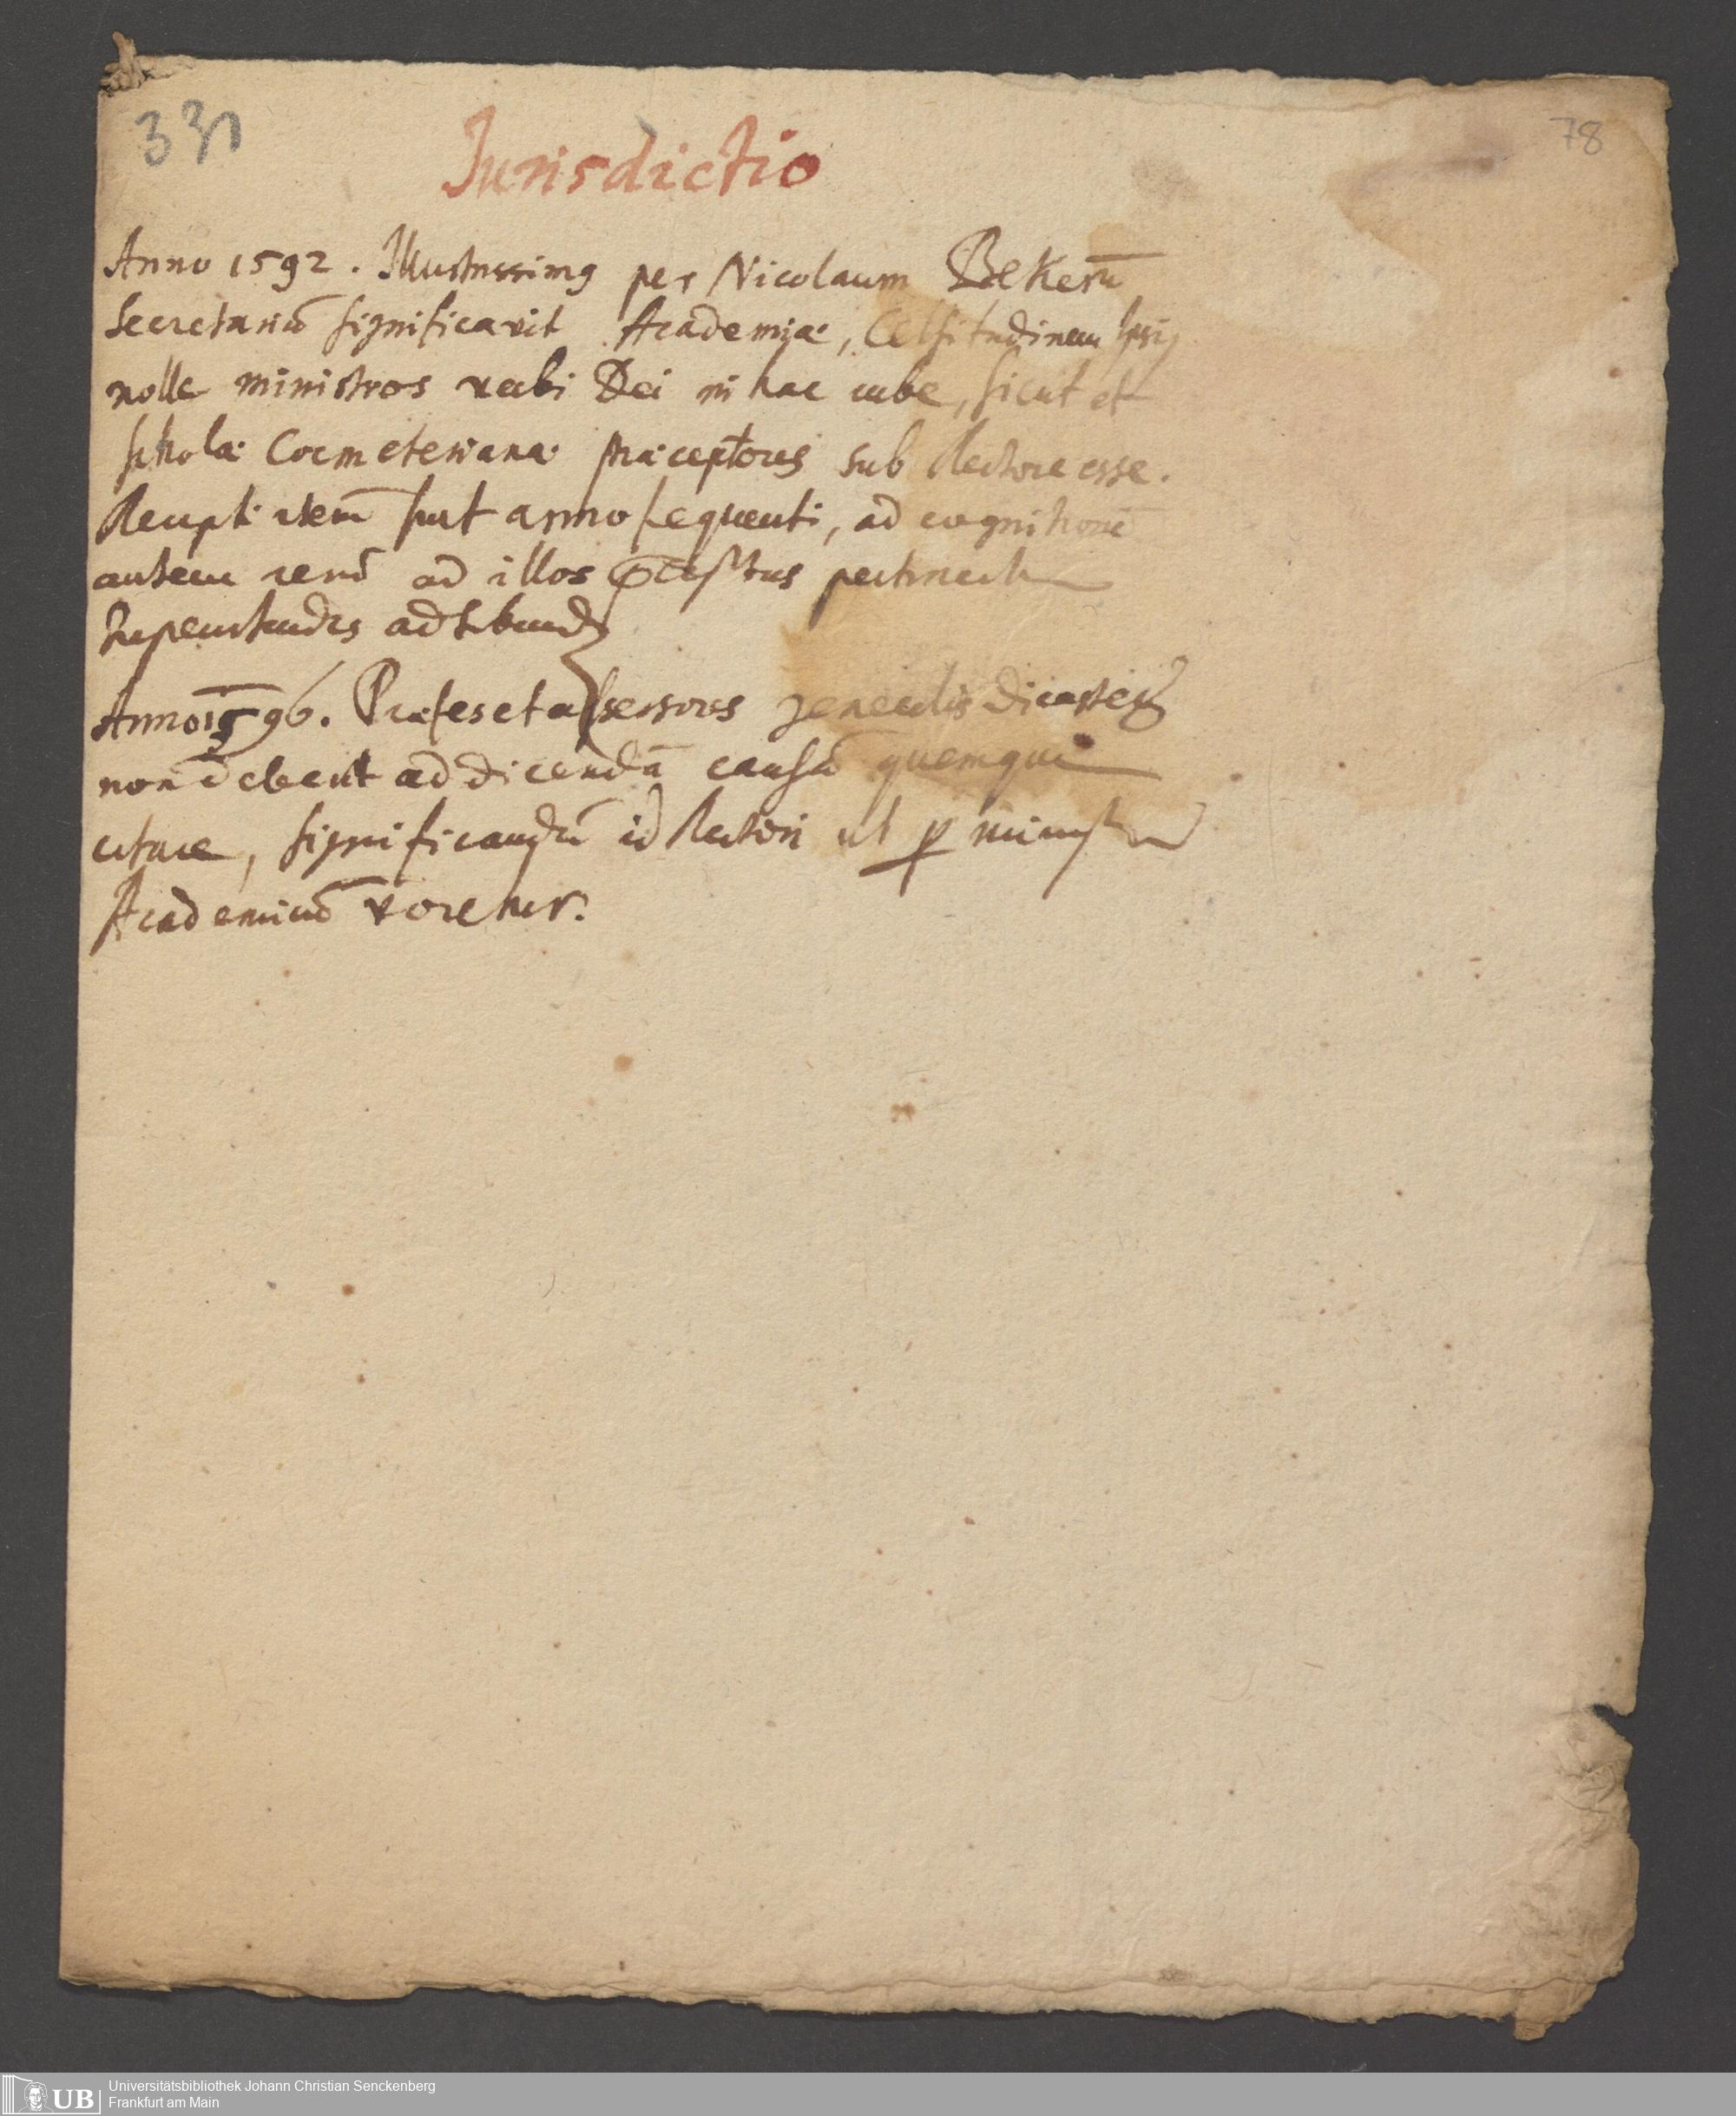 331
78
Jurisdictio
Anno 1592. Illustrissimꝰ per Nicolaum Bekerū
Secretariū significavit Academiæ, Celsitudinem Ipsiꝰ
nolle ministros verbi Dei in hac urbe, sicut et
scholæ Coemeterianæ præceptores sub Rectore esse.
Recepti iterū sunt anno sequenti, ad cognitionē
autem rerū ad illos pertinent
Superintendens adhibend
Anno 1596. Præses et assessores generalis dicasterij
non debent ad dicendā causā quemquā
citare, significandū id Rectori ut ꝑ ministrū
Academicū vocetur.
UB
Universitätsbibliothek Johann Christian Senckenberg
Frankfurt am Main